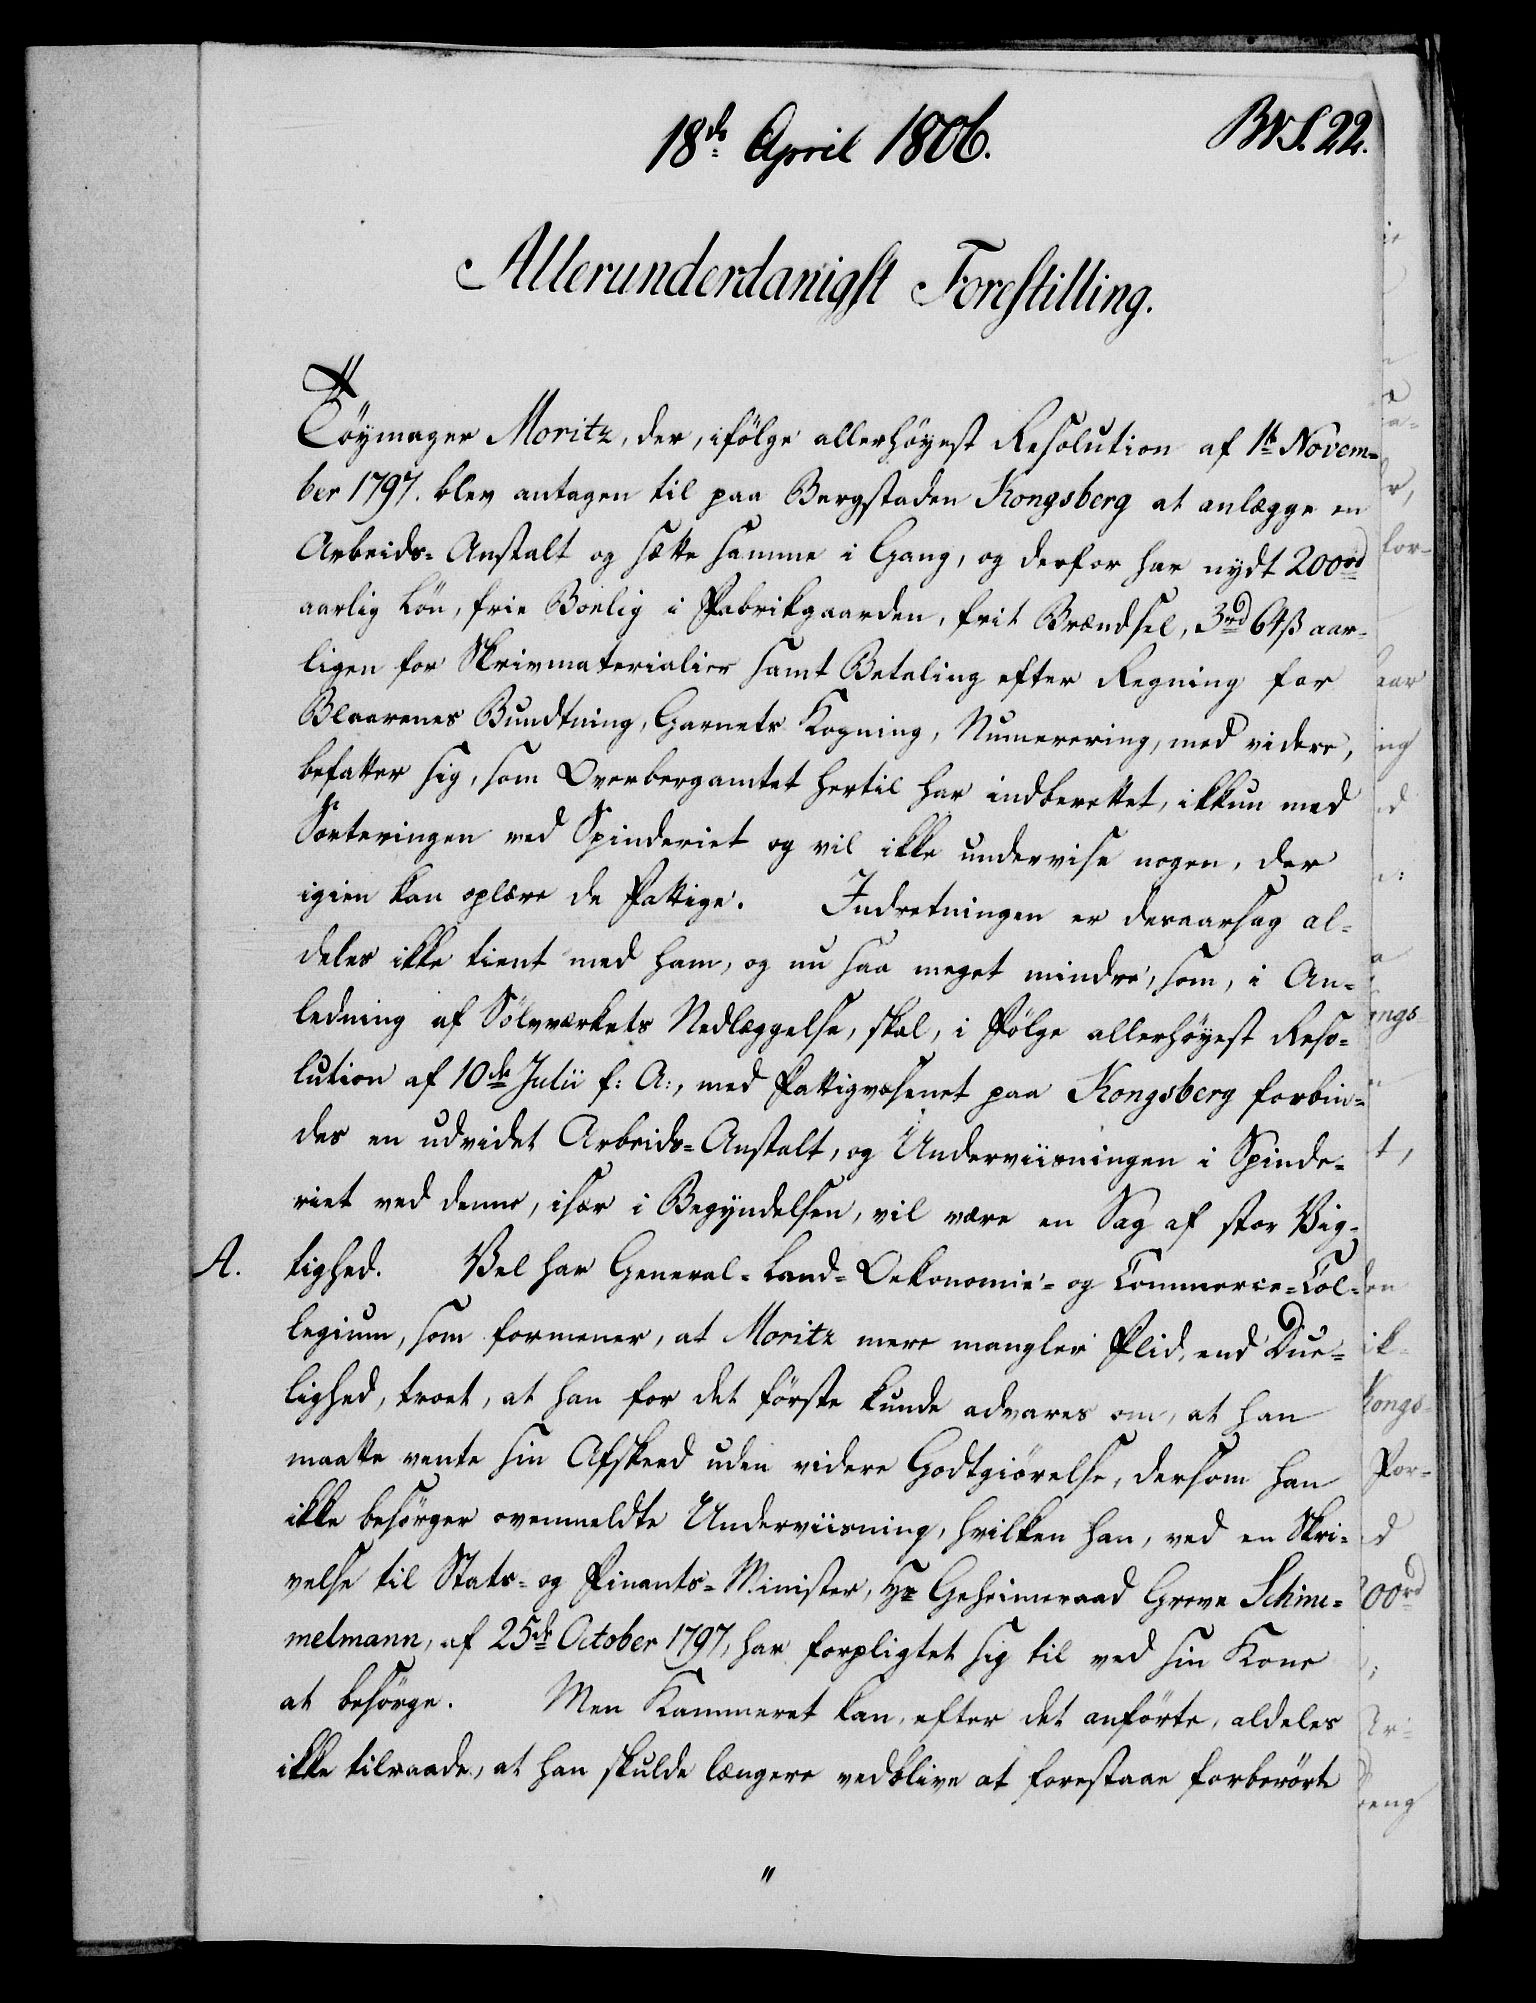 18de April 1806.
BVS. 22.
Allerunderdanigst Forestilling.
Töymager Moritz, der, ifölge allerhöyest Resolution af 1te Novem-
ber 1797. blev antagen til paa Bergstaden Kongsberg at anlægge en
Arbeids-Anstalt og sætte samme i Gang, og derfor har nydt 200rd
aarlig Lön, frie Boelig i Fabrikgaarden, frit Brændsel, 3rd 64ß aar-
ligen for Skrivmaterialier samt Betaling efter Regning for
Blaarenes Bundtning, Garnets Kogning, Numerering, med videre,
befatter sig, som Overbergamtet hertil har indberettet, ikkun med
Sorteringen ved Spinderiet og vil ikke undervise nogen, der
igien kan oplære de Fattige. Indretningen er desaarsag al-
deles ikke tient med ham, og nu saa meget mindre, som, i An-
ledning af Sölvværkets Nedlæggelse, skal, i Fölge allerhöyest Reso-
lution af 10de Julii f: A:, med Fattigvæsenet paa Kongsberg forbin-
des en udvidet Arbeids-Anstalt, og Underviisningen i Spinde-
riet ved denne, især i Begyndelsen, vil være en Sag af stor Vig-
A. tighed. Vel har General-Land-Oekonomie- og Commerce-Col-
legium, som formener, at Moritz mere mangler Flid, end Due-
lighed, troet, at han for det förste kunde advares om, at han
maatte vente sin Afskeed uden videre Godtgiörelse, dersom han
ikke besörger ovenmeldte Underviisning, hvilken han, ved en Skri-
velse til Stats- og Finants-Minister, Hr Geheimeraad Greve Schim-
melmann, af 25de October 1797, har forpligtet sig til ved sin Kone
at besörge. Men Kammeret kan, efter det anförte, aldeles
ikke tilraade, at han skulde længere vedblive at forestaae forberörte
"